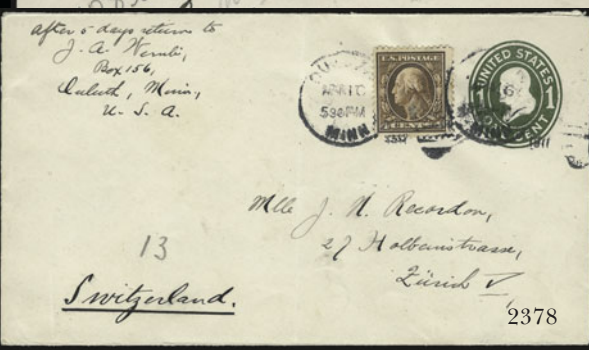 after 5 days return to
J. A.
Box 156,
Duluth, Minn,
U. S. A.
MINN
530PM
U.S. POSTAGE
CENTS
UNITED STATES
1 1
CENT
1911
Mlle J. N. Recordon,
27 Holbeinstrasse,
Zürich V
13
Switzerland.
2378